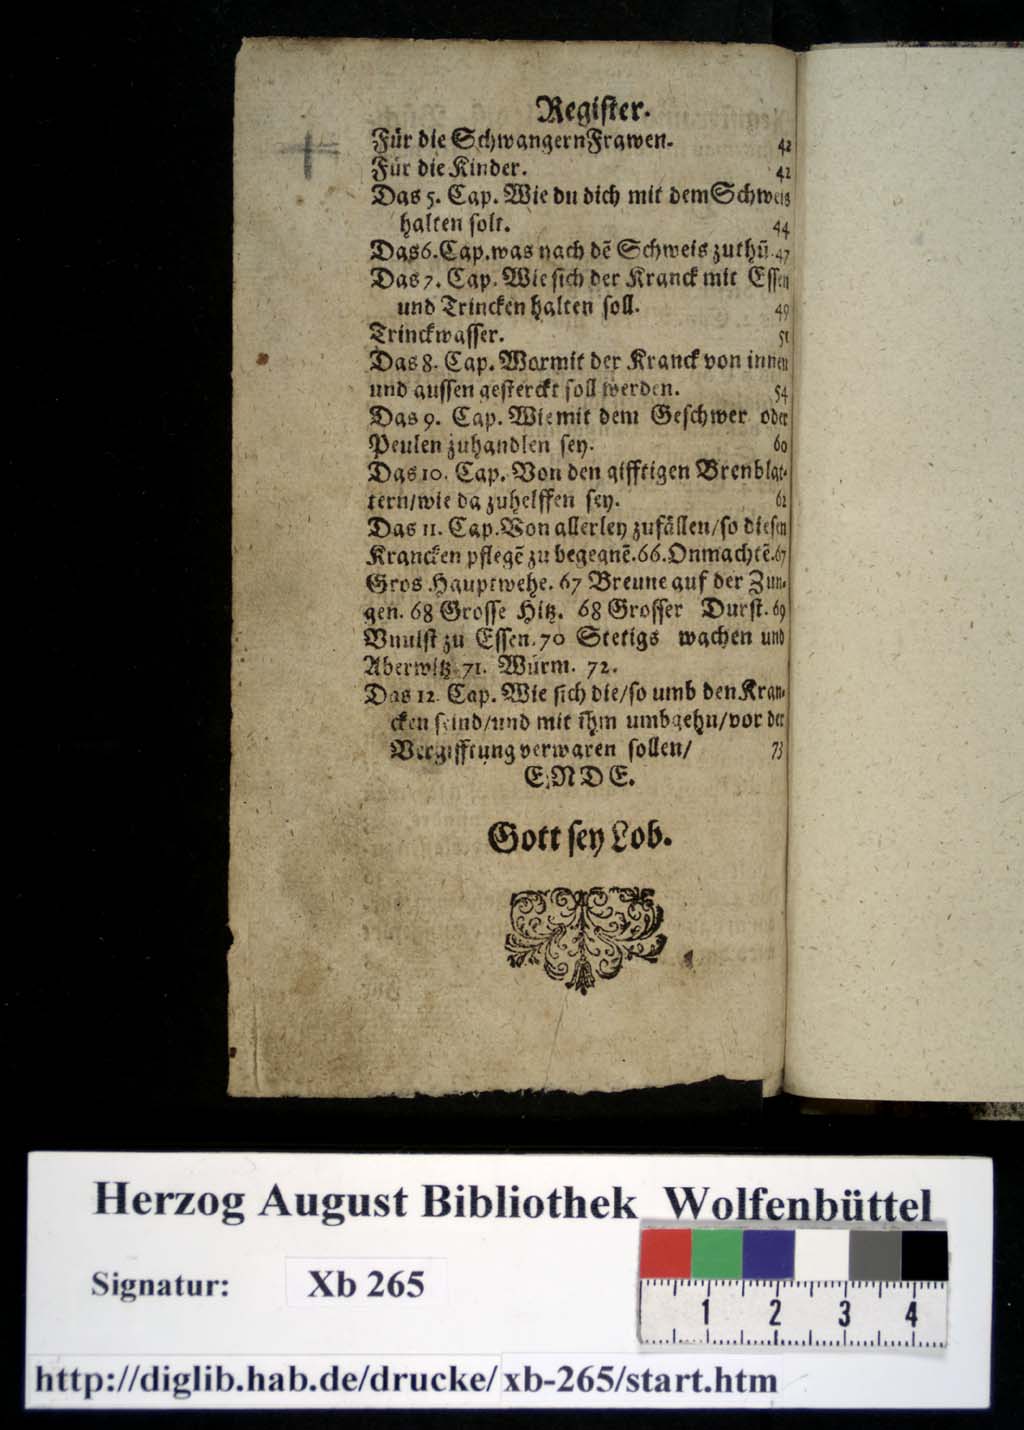 Register.
Für die Schwangern Frawen. 42
Für die Kinder. 42
Das 5. Cap. Wie du dich mit dem Schweis
halten solt. 44
Das 6. Cap. was nach dē Schweis zuthū. 47
Das 7. Cap. Wie sich der Kranck mit Essen
und Trincken halten soll. 49
Trinckwasser. 51
Das 8. Cap. Wormit der Kranck von innen
und aussen gesterckt soll werden. 54
Das 9. Cap. Wie mit dem Geschwer oder
Peulen zuhandlen sey. 60
Das 10. Cap. Von den gifftigen Brenblat-
tern/wie da zuhelffen sey. 62
Das 11. Cap. Von allerley zufällen/so diesen
Krancken pflegē zu begegnē. 66. Onmachtē. 67
Gros Hauptwehe. 67 Breune auf der Zun-
gen. 68 Grosse Hitz. 68 Grosser Durst. 69
Vnnlst zu Essen. 70 Stetigs wachen und
Aberwitz 71. Würm. 72.
Das 12. Cap. Wie sich die/so umb den Kran-
cken seind/und mit ihm umbgehn/vor der
Vergifftung verwaren sollen/ 73
ENDE.
Gott sey Lob.
Herzog August Bibliothek Wolfenbüttel
Signatur: Xb 265
1 2 3 4
http://diglib.hab.de/drucke/xb-265/start.htm